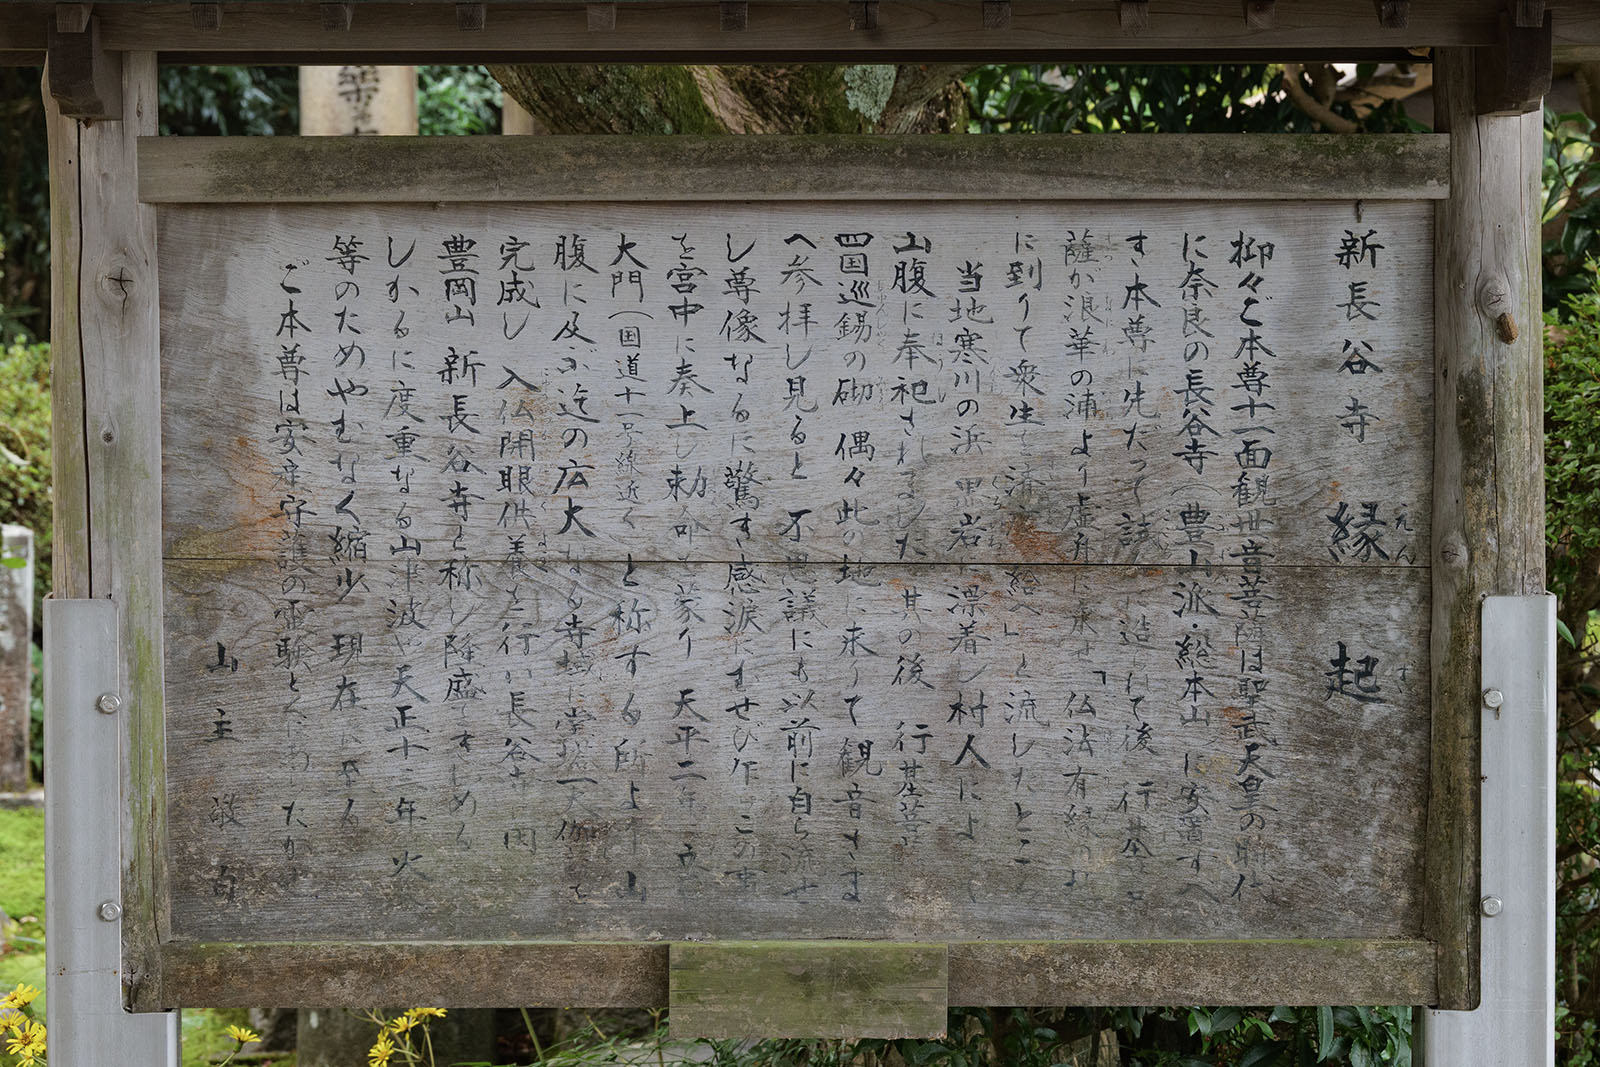 新長谷寺 縁起
えん ぎ
抑々ご本尊十一面観世音菩薩は聖武天皇の御代
に奈良の長谷寺(豊山派・総本山)に安置すべ
き本尊に先だって試に造られて後 行基菩
薩が浪華の浦より虚舟に乗せ「仏法有縁の地
に到りて衆生を済 給へ」と流したところ
当地寒川の浜 黒岩に漂着し村人によ
山腹に奉祀されました 其の後 行基菩
四国巡錫の砌 偶々此の地に来りて観音さま
へ参拝し見ると 不思議にも以前に自ら流せ
し尊像なるに驚き感涙にむせび この
を宮中に奏上し勅命を蒙り 天平二年
大門(国道十一号線近く)と称する所より山
腹に及ぶ迄の広大なる寺域に堂塔 伽 て
完成し 入仏開眼供養を行い長谷寺
豊岡山 新長谷寺と称し隆盛 きわめる
しかるに度重なる山津波や天正十三年火
等のためやむなく縮少 現在に至る
ご本尊は安産守護の霊験とくにあらたか
山主 敬白